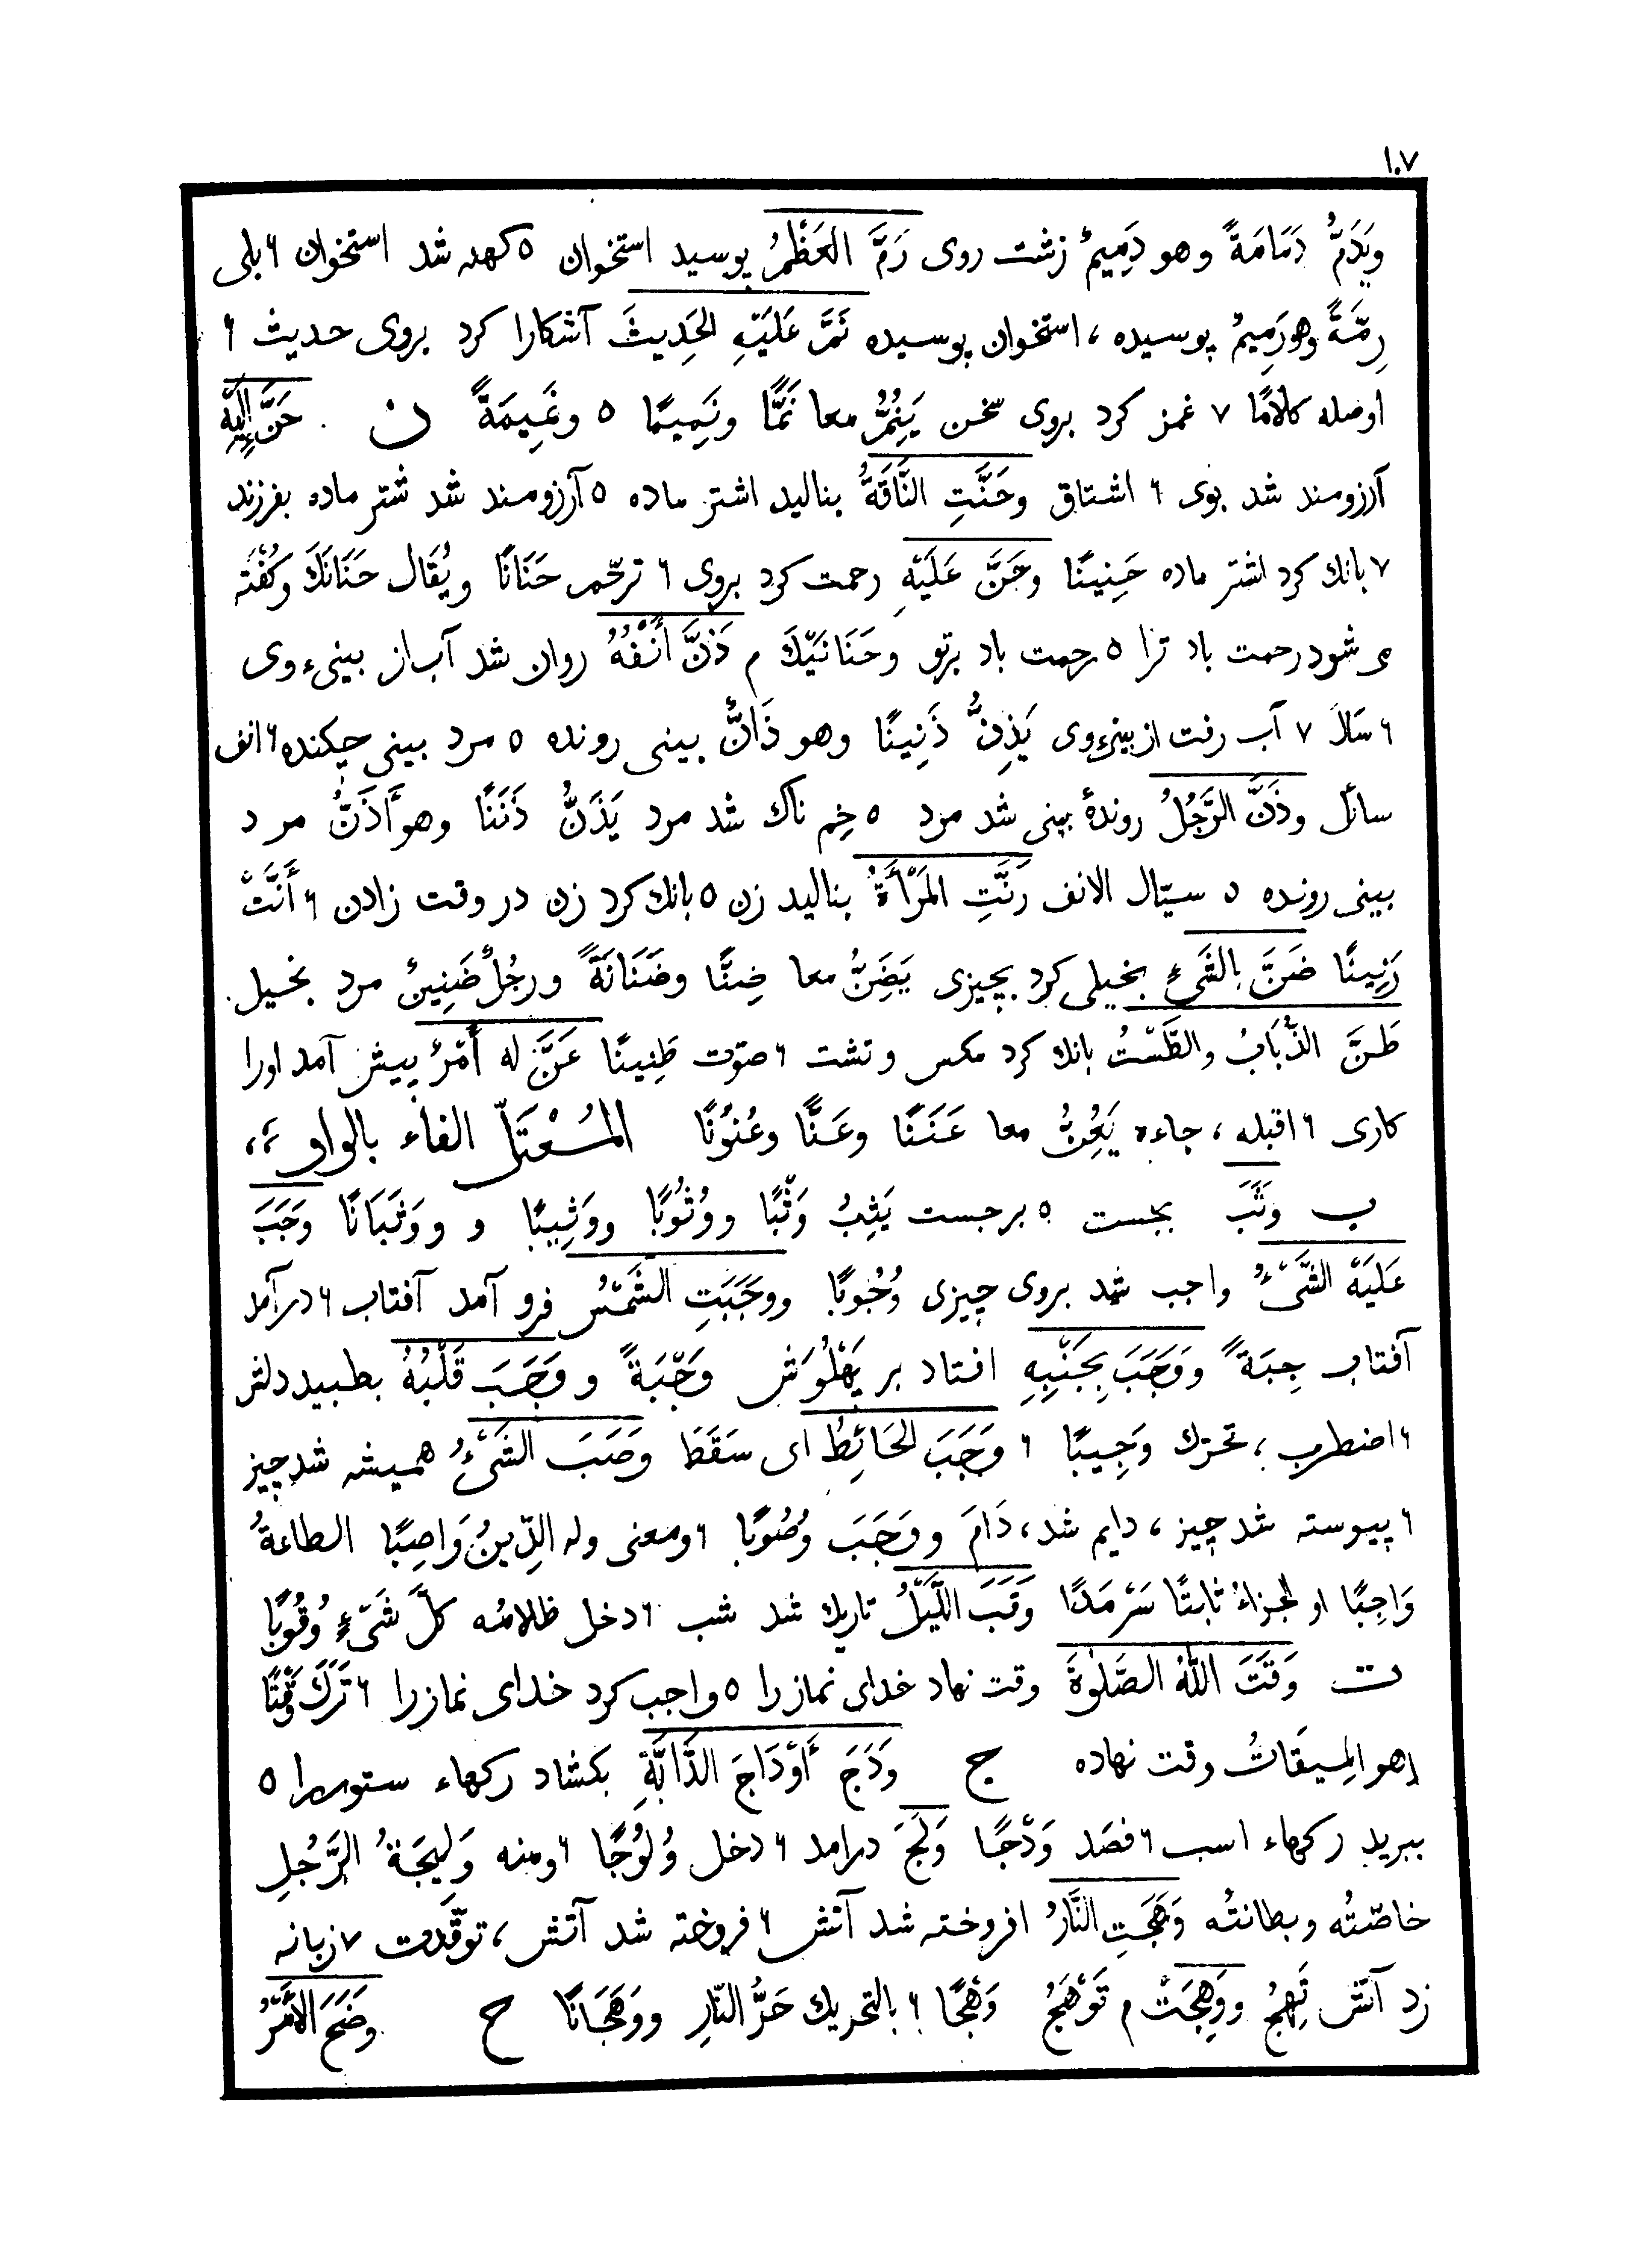 ١٠٧
وَيَدَمُّ دَمَامَةً وهو دَمِيمٌ زشت روی رَمَّ العَظْمُ پوسید استخوان ٥ کهنه شد استخوان ٦ بلی
رِمَّةً وهو رَمِيمٌ پوسیده ، استخوان پوسیده نَمَّ عَلَيْهِ الحَدِيثَ آشکارا کرد بروی حدیث ٦
اوصله کلامًا ٧ غمز کرد بروی سخن يَنِمُّ معا نَمًّا ونَمِيمًا ٥ ونَمِيمَةً ن حَنَّ إِلَيْهِ
آرزومند شد بوی ٦ اشتاق وحَنَّتِ النَّاقَةُ بنالید اشتر ماده ٥ آرزومند شد شتر ماده بفرزند
٧ بانك كرد اشتر ماده حَنِينًا وحَنَّ عَلَيْهِ رحمت کرد بروی ٦ ترحّم حَنَانًا ويُقَال حَنَانَكَ وکُفْتَه
می شود رحمت باد ترا ٥ رحمت باد برتو وحَنَانَيْكَ م ذَنَّ أَنْفُهُ روان شد آب از بینیء وی
٦ سَالَ ٧ آب رفت از بینیء وی يَذِنُّ ذَنِينًا وهو ذَانٌّ بینی رونده ٥ مرد بینی چکنده ٦ انف
سائل وذَنَّ الرَّجُلُ روندهٔ بینی شد مرد ٥ خِم ناك شد مرد يَذَنُّ ذَنَنًا وهو أَذَنُّ مرد
بینی رونده ٥ سیّال الانف رَنَّتِ المَرْأَةُ بنالید زن ٥ بانك کرد زن در وقت زادن ٦ أَنَّتْ
رَنِينًا ضَنَّ بالشَّیْءِ بخیلی کرد بچیزی يَضِنُّ معا ضِنًّا وضَنَانَةً ورجُلٌ ضَنِينٌ مرد بخیل.
طَنَّ الذُّبَابُ والطَّسْتُ بانك كرد مكس وتشت ٦ صوّت طَنِينًا عَنَّ له أَمْرٌ پیش آمد اورا
کاری ٦ اقبله ، جاءه يَعُِنُّ معا عَنَنًا وعَنًّا وعُنُونًا المُسْعْتَلّ الفاء بالواو ،،
ب وَثَبَ بجست ٥ برجست يَثِبُ وَثْبًا ووُثُوبًا ووَثِيبًا و ووَثَبَانًا وَجَبَ
عَلَيْهِ الشَّیْءُ واجب شد بروی چیزی وُجُوبًا ووَجَبَتِ الشَّمْسُ فرو آمد آفتاب ٦ درآمد
آفتاب جِبَةً ووَجَبَ بِجَنْبِهِ افتاد بر پَهْلُوَش وَجْبَةً و وَجَبَ قَلْبُهُ بطبید دلش
٦ اضطرب ، تحرّك وَجِيبًا ٦ وَجَبَ الحَائِطُ ای سَقَطَ وَصَبَ الشَّیْءُ همیشه شد چیز
٦ پیوسته شد چیز ، دایم شد ، دَامَ و وَجَبَ وُصُوبًا ٦ ومعنی وله الدِّينُ وَاصِبًا الطاعةُ
وَاجِبًا او الجزاءُ ثابتًا سَرْمَدًا وَقَبَ اللَّيْلُ تاریك شد شب ٦ دخل ظلامُه كلَّ شَیْءٍ وُقُوبًا
ت وَقَتَ اللّٰهُ الصَّلٰوةَ وقت نهاد خدای نماز را ٥ واجب کرد خدای نماز را ٦ تَرَكَ وَقْتًا
اهو المِيقَاتُ وقت نهاده ج وَدَجَ أَوْدَاجَ الدَّابَّةِ بکشاد رکهاء ستور را ٥
ببرید رکهاء اسب ٦ فصَد وَدْجًا وَلَجَ درامد ٦ دخل وُلُوجًا ٦ ومنه وَلِيجَةُ الرَّجُلِ
خاصّتُه وبطانتُه وَهَجَتِ النَّارُ افروخته شد آتش ٦ فروخته شد آتش ، توقّدت ٧ زبانه
زد آتش تَهِجُ ووَهِجَتْ م تَوْهَجُ وَهْجًا ٦ بالتحریك حَرُّ النّارِ ووَهَجَانًا ح وَضَحَ الأَمْرُ